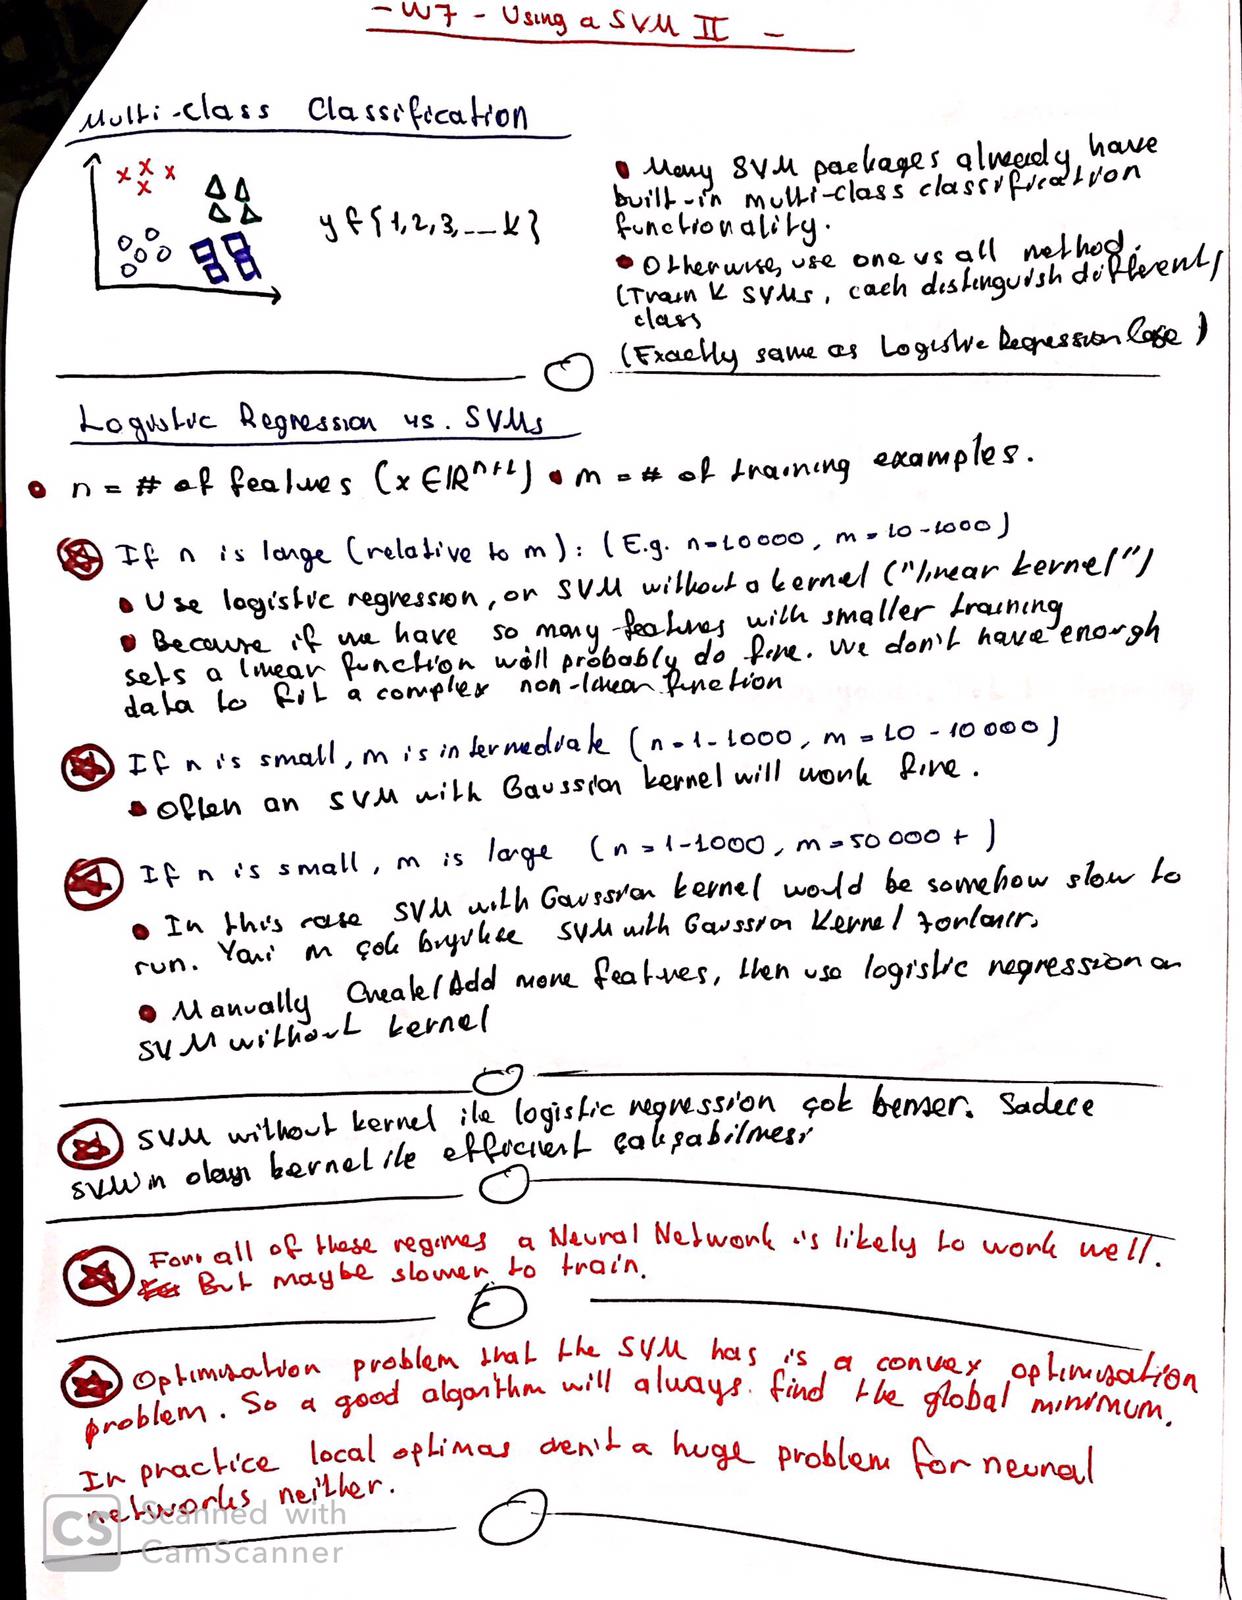 - W7 - Using a SVM II -
Multi-class Classification
y ∈ {1, 2, 3, ... K}
• Many SVM packages already have
built-in multi-class classification
functionality.
• Otherwise, use one vs all method.
(Train K SVMs, each distinguish different
class)
(Exactly same as Logistic Regression Case)
Logistic Regression vs. SVMs
• n = # of features (x ∈ ℝⁿ⁺¹) • m = # of training examples.
If n is large (relative to m): (E.g. n=10000, m=10-1000)
• Use logistic regression, or SVM without a kernel ("linear kernel")
• Because if we have so many features with smaller training
sets a linear function will probably do fine. We don't have enough
data to fit a complex non-linear function
If n is small, m is intermediate (n=1-1000, m=10-10000)
• Often an SVM with Gaussian kernel will work fine.
If n is small, m is large (n=1-1000, m=50000+)
• In this case SVM with Gaussian kernel would be somehow slow to
run. Yani m çok büyükse SVM with Gaussian Kernel zorlanır.
• Manually Create/Add more features, then use logistic regression or
SVM without kernel
SVM without kernel ile logistic regression çok benzer. Sadece
SVM'in olayı kernel ile efficient çalışabilmesi
For all of these regimes a Neural Network is likely to work well.
But maybe slower to train.
Optimisation problem that the SVM has is a convex optimisation
problem. So a good algorithm will always find the global minimum.
In practice local optimas aren't a huge problem for neural
networks neither.
CS Scanned with
CamScanner